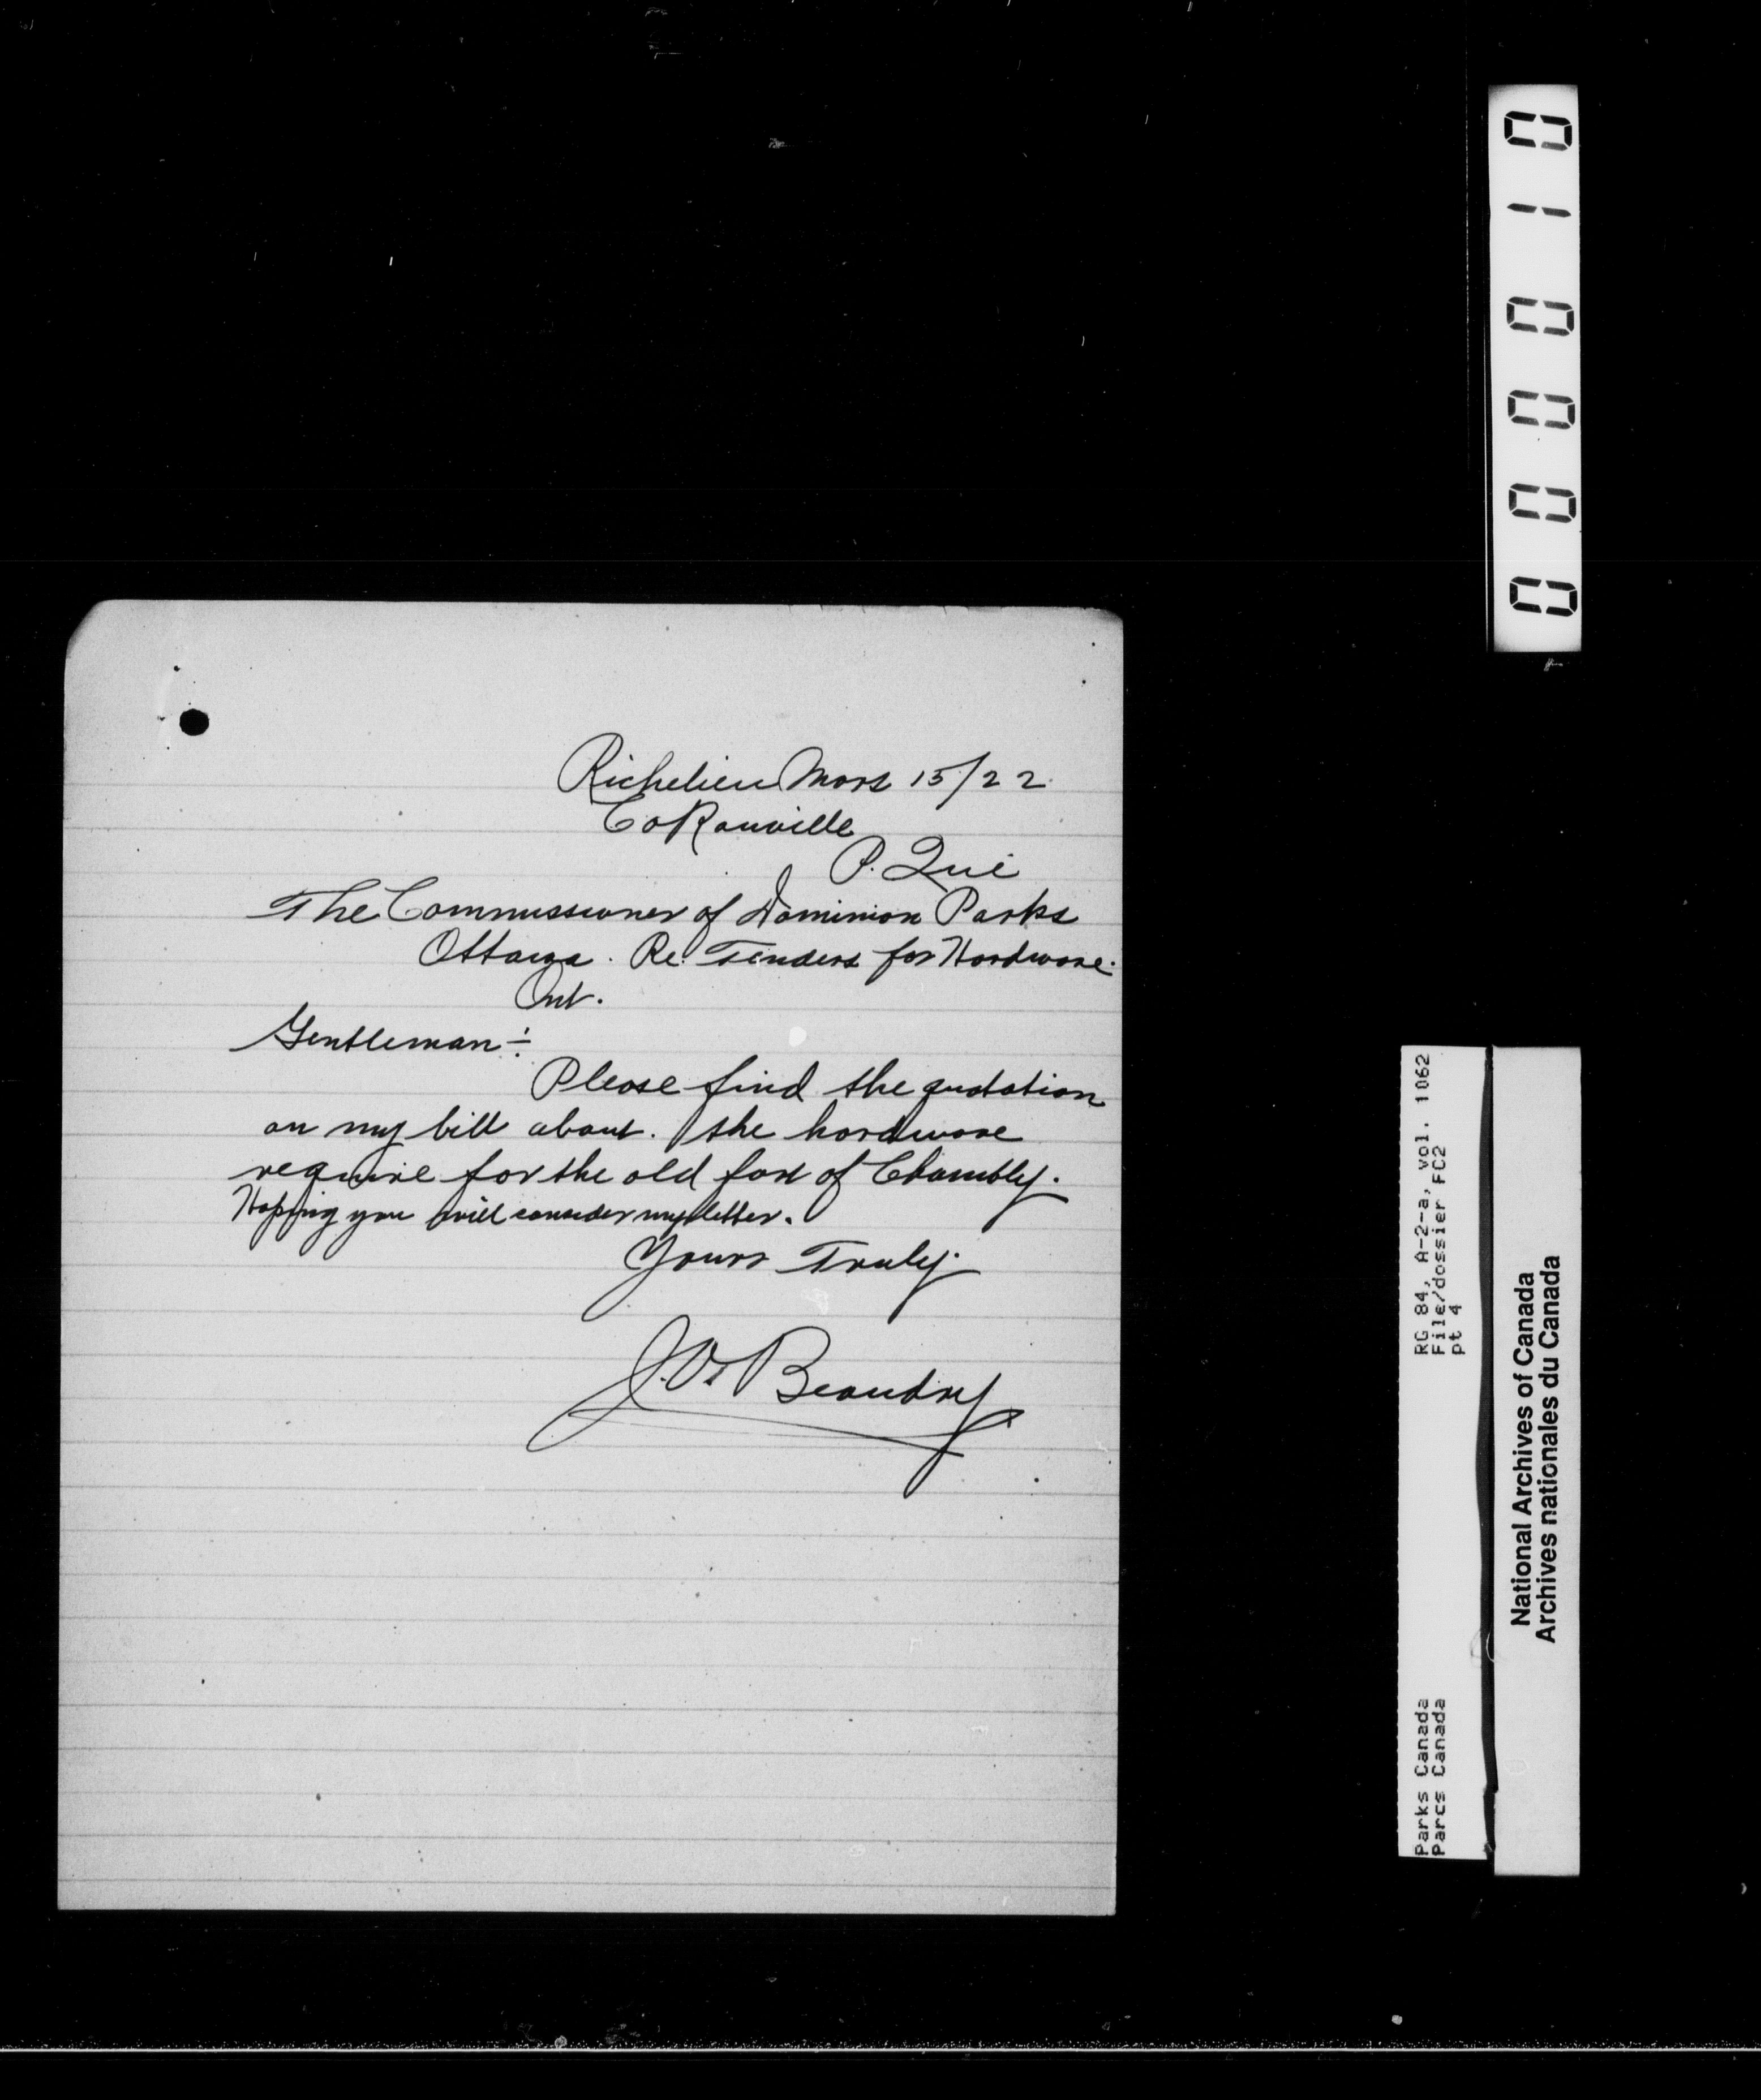 Richelieu Mars 15/22
Co Rouville
P. Que
The Commissioner of Dominion Parks
Ottawa. Re. Tenders for Hardware.
Ont.
Gentleman:-
Please find the quotation
on my bill about. the hardware
require for the old fort of Chambly.
Hopping you will consider my letter.
Yours Truly.
J.O. Beaudry
000010
RG 84, A-2-a, vol. 1062
File/dossier FC2
pt 4
Parks Canada
Parcs Canada
National Archives of Canada
Archives nationales du Canada